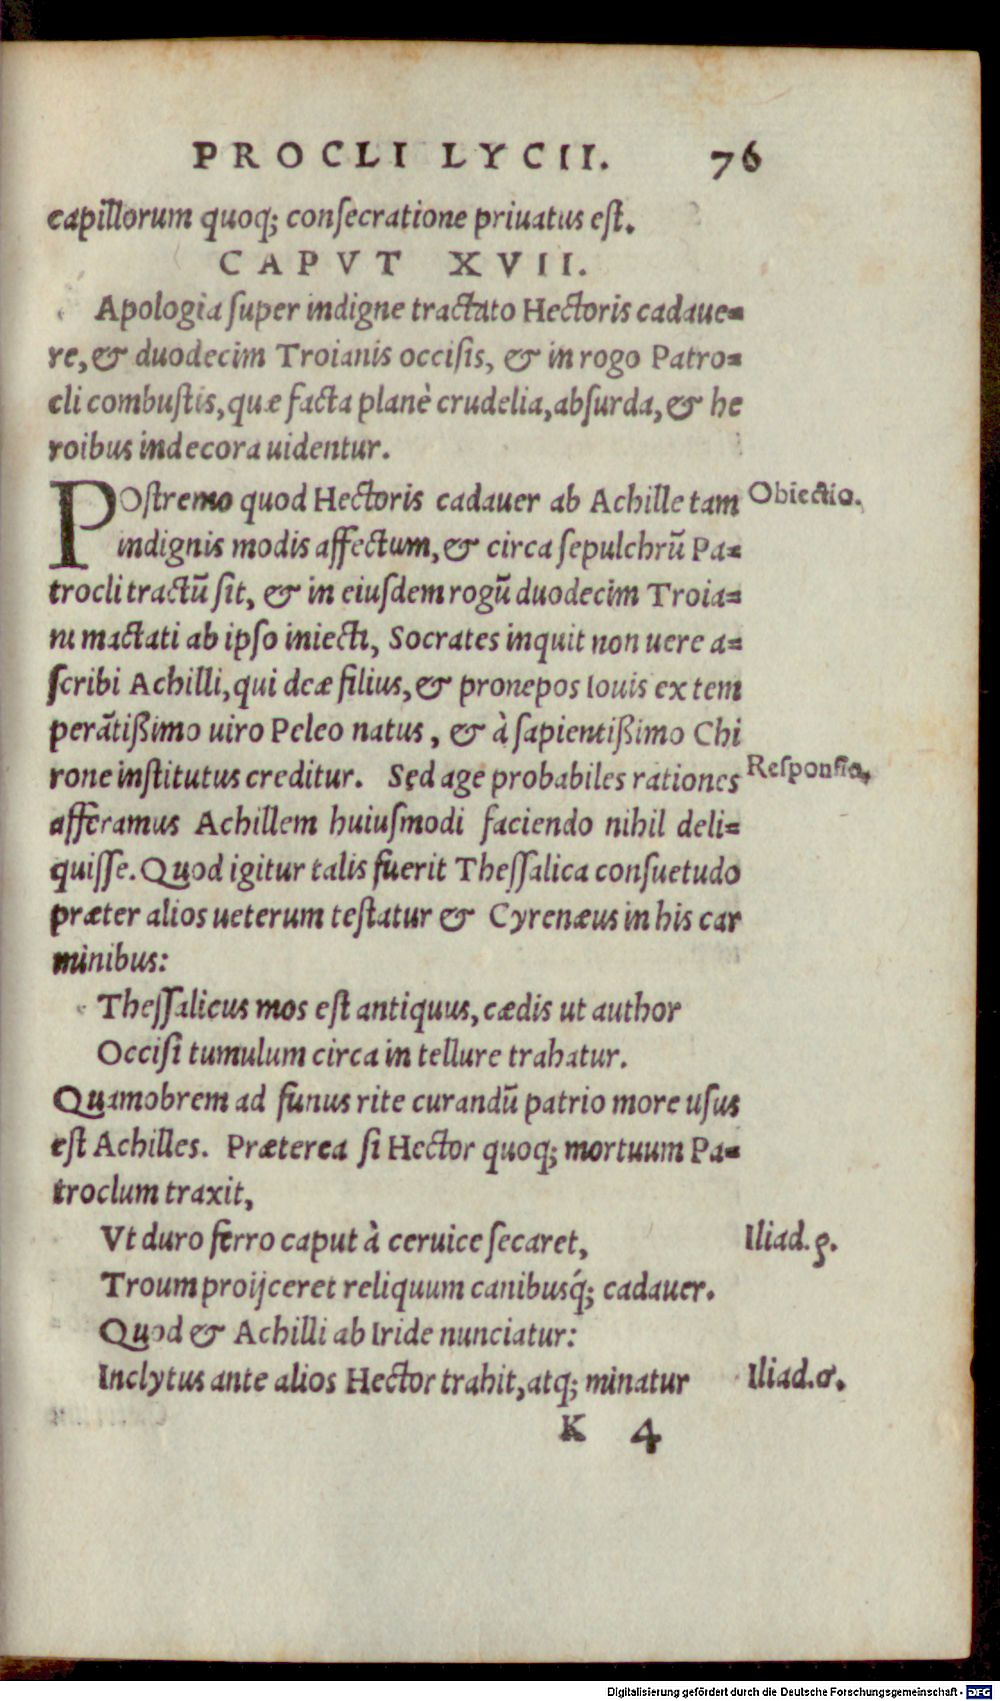 PROCLI LYCII. 76
capillorum quoq; conſecratione priuatus eſt.
CAPVT XVII.
Apologia ſuper indigne tractato Hectoris cadaue=
re, & duodecim Troianis occiſis, & in rogo Patro=
cli combuſtis, quæ facta planè crudelia, abſurda, & he
roibus indecora uidentur.
POſtremo quod Hectoris cadauer ab Achille tam
Obiectio.
indignis modis affectum, & circa ſepulchrũ Pa=
trocli tractũ ſit, & in eiuſdem rogũ duodecim Troia=
ni mactati ab ipſo iniecti, Socrates inquit non uere a=
ſcribi Achilli, qui deæ filius, & pronepos Iouis ex tem
perãtißimo uiro Peleo natus, & à ſapientißimo Chi
rone inſtitutus creditur. Sed age probabiles rationes
Reſponſio.
afferamus Achillem huiuſmodi faciendo nihil deli=
quiſſe. Quod igitur talis fuerit Theſſalica conſuetudo
præter alios ueterum teſtatur & Cyrenæus in his car
minibus:
Theſſalicus mos eſt antiquus, cædis ut author
Occiſi tumulum circa in tellure trahatur.
Quamobrem ad funus rite curandũ patrio more uſus
eſt Achilles. Præterea ſi Hector quoq; mortuum Pa=
troclum traxit,
Vt duro ferro caput à ceruice ſecaret,
Iliad. ρ.
Troum proijceret reliquum canibusq́; cadauer.
Quod & Achilli ab Iride nunciatur:
Inclytus ante alios Hector trahit, atq; minatur
Iliad. σ.
K 4
Digitalisierung gefördert durch die Deutsche Forschungsgemeinschaft - DFG